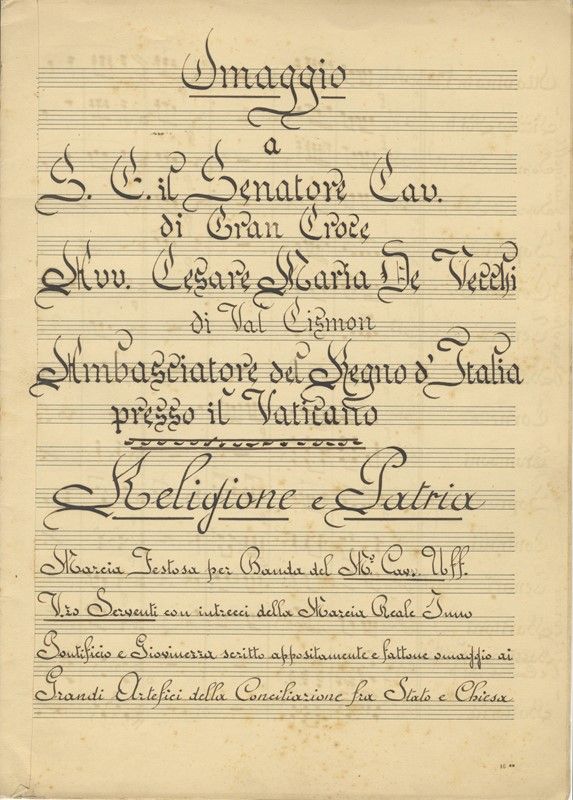 Omaggio
a
S. E. il Senatore Cav.
di Gran Croce
Avv. Cesare Maria De Vecchi
di Val Cismon
Ambasciatore del Regno d'Italia
presso il Vaticano
Religione e Patria
Marcia Festosa per Banda del M.º Cav. Uff.
V.zo Serventi con intrecci della Marcia Reale Inno
Pontificio e Giovinezza scritto appositamente e fattone omaggio ai
Grandi Artefici della Conciliazione fra Stato e Chiesa